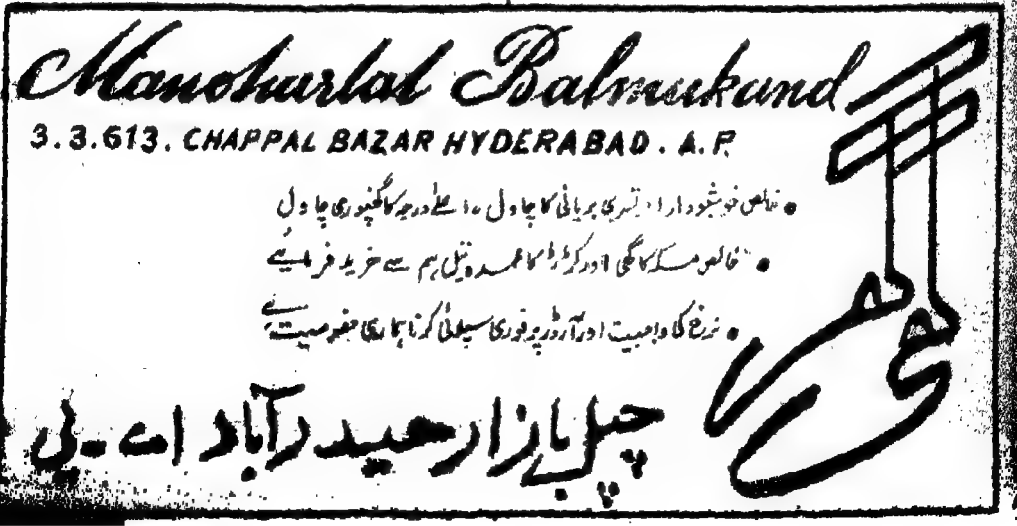 Manoharlal Balmukund
3.3.613. CHAPPAL BAZAR HYDERABAD. A.P.
• خالص خوشبودار امرتسری بریانی کا چاول ۔ اعلے درجہ کا گھنپوری چاول
• خالص مسکہ کا گھی اور کرڑ کا عمدہ تیل ہم سے خرید فرمایئے
• نرخ کی واجبیت اور آرڈر پر فوری سپلائی کرنا ہماری خصوصیت ہے
چپل بازار حیدرآباد اے ۔ پی